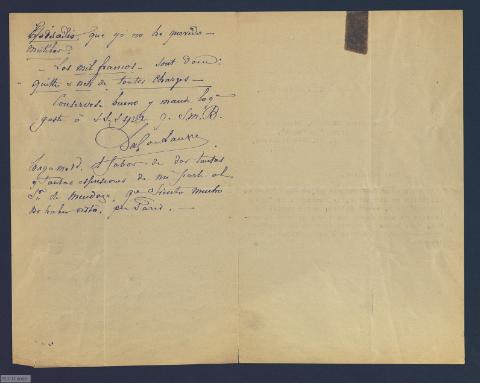 que yo no he querido
mutilar?
- Los mil francos - sont donc:
quitte & nets de toutes charges -
Conservese bueno y mande
gusto á S. S. S. q. S. M. B.
Hagame el favor de dar tantas
y tantas espresiones de mi parte al
Sr. de Mendoza, que siento mucho
no haber visto, en Paris. -